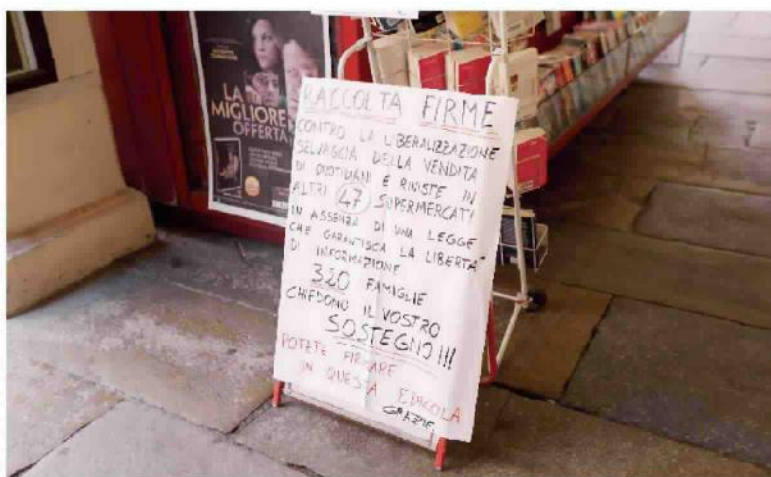 LA
MIGLIORE
OFFERTA
RACCOLTA FIRME
CONTRO LA LIBERALIZZAZIONE
SELVAGGIA DELLA VENDITA
DI QUOTIDIANI E RIVISTE IN
ALTRI 47 SUPERMERCATI
IN ASSENZA DI UNA LEGGE
CHE GARANTISCA LA LIBERTA'
DI INFORMAZIONE
320 FAMIGLIE
CHIEDONO IL VOSTRO
SOSTEGNO!!!
POTETE FIRMARE
IN QUESTA EDICOLA
GRAZIE